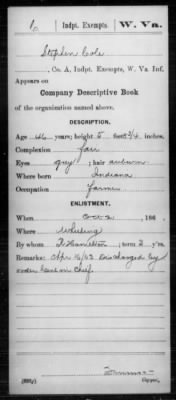 C | Indpt. Exempts. | W. Va.
Stephen Cole
, Co. A, Indpt. Exempts, W. Va. Inf.
Appears on
Company Descriptive Book
of the organization named above.
DESCRIPTION.
Age 46 years; height 5 feet 3/4 inches.
Complexion fair
Eyes grey; hair auburn
Where born Indiana
Occupation farmer
ENLISTMENT.
When Oct 2, 186
Where Wheeling
By whom Hamilton; term 3 y'rs.
Remarks: Apr 16/63 Discharged by
order Genl in Chief.
(383g) Copyist.